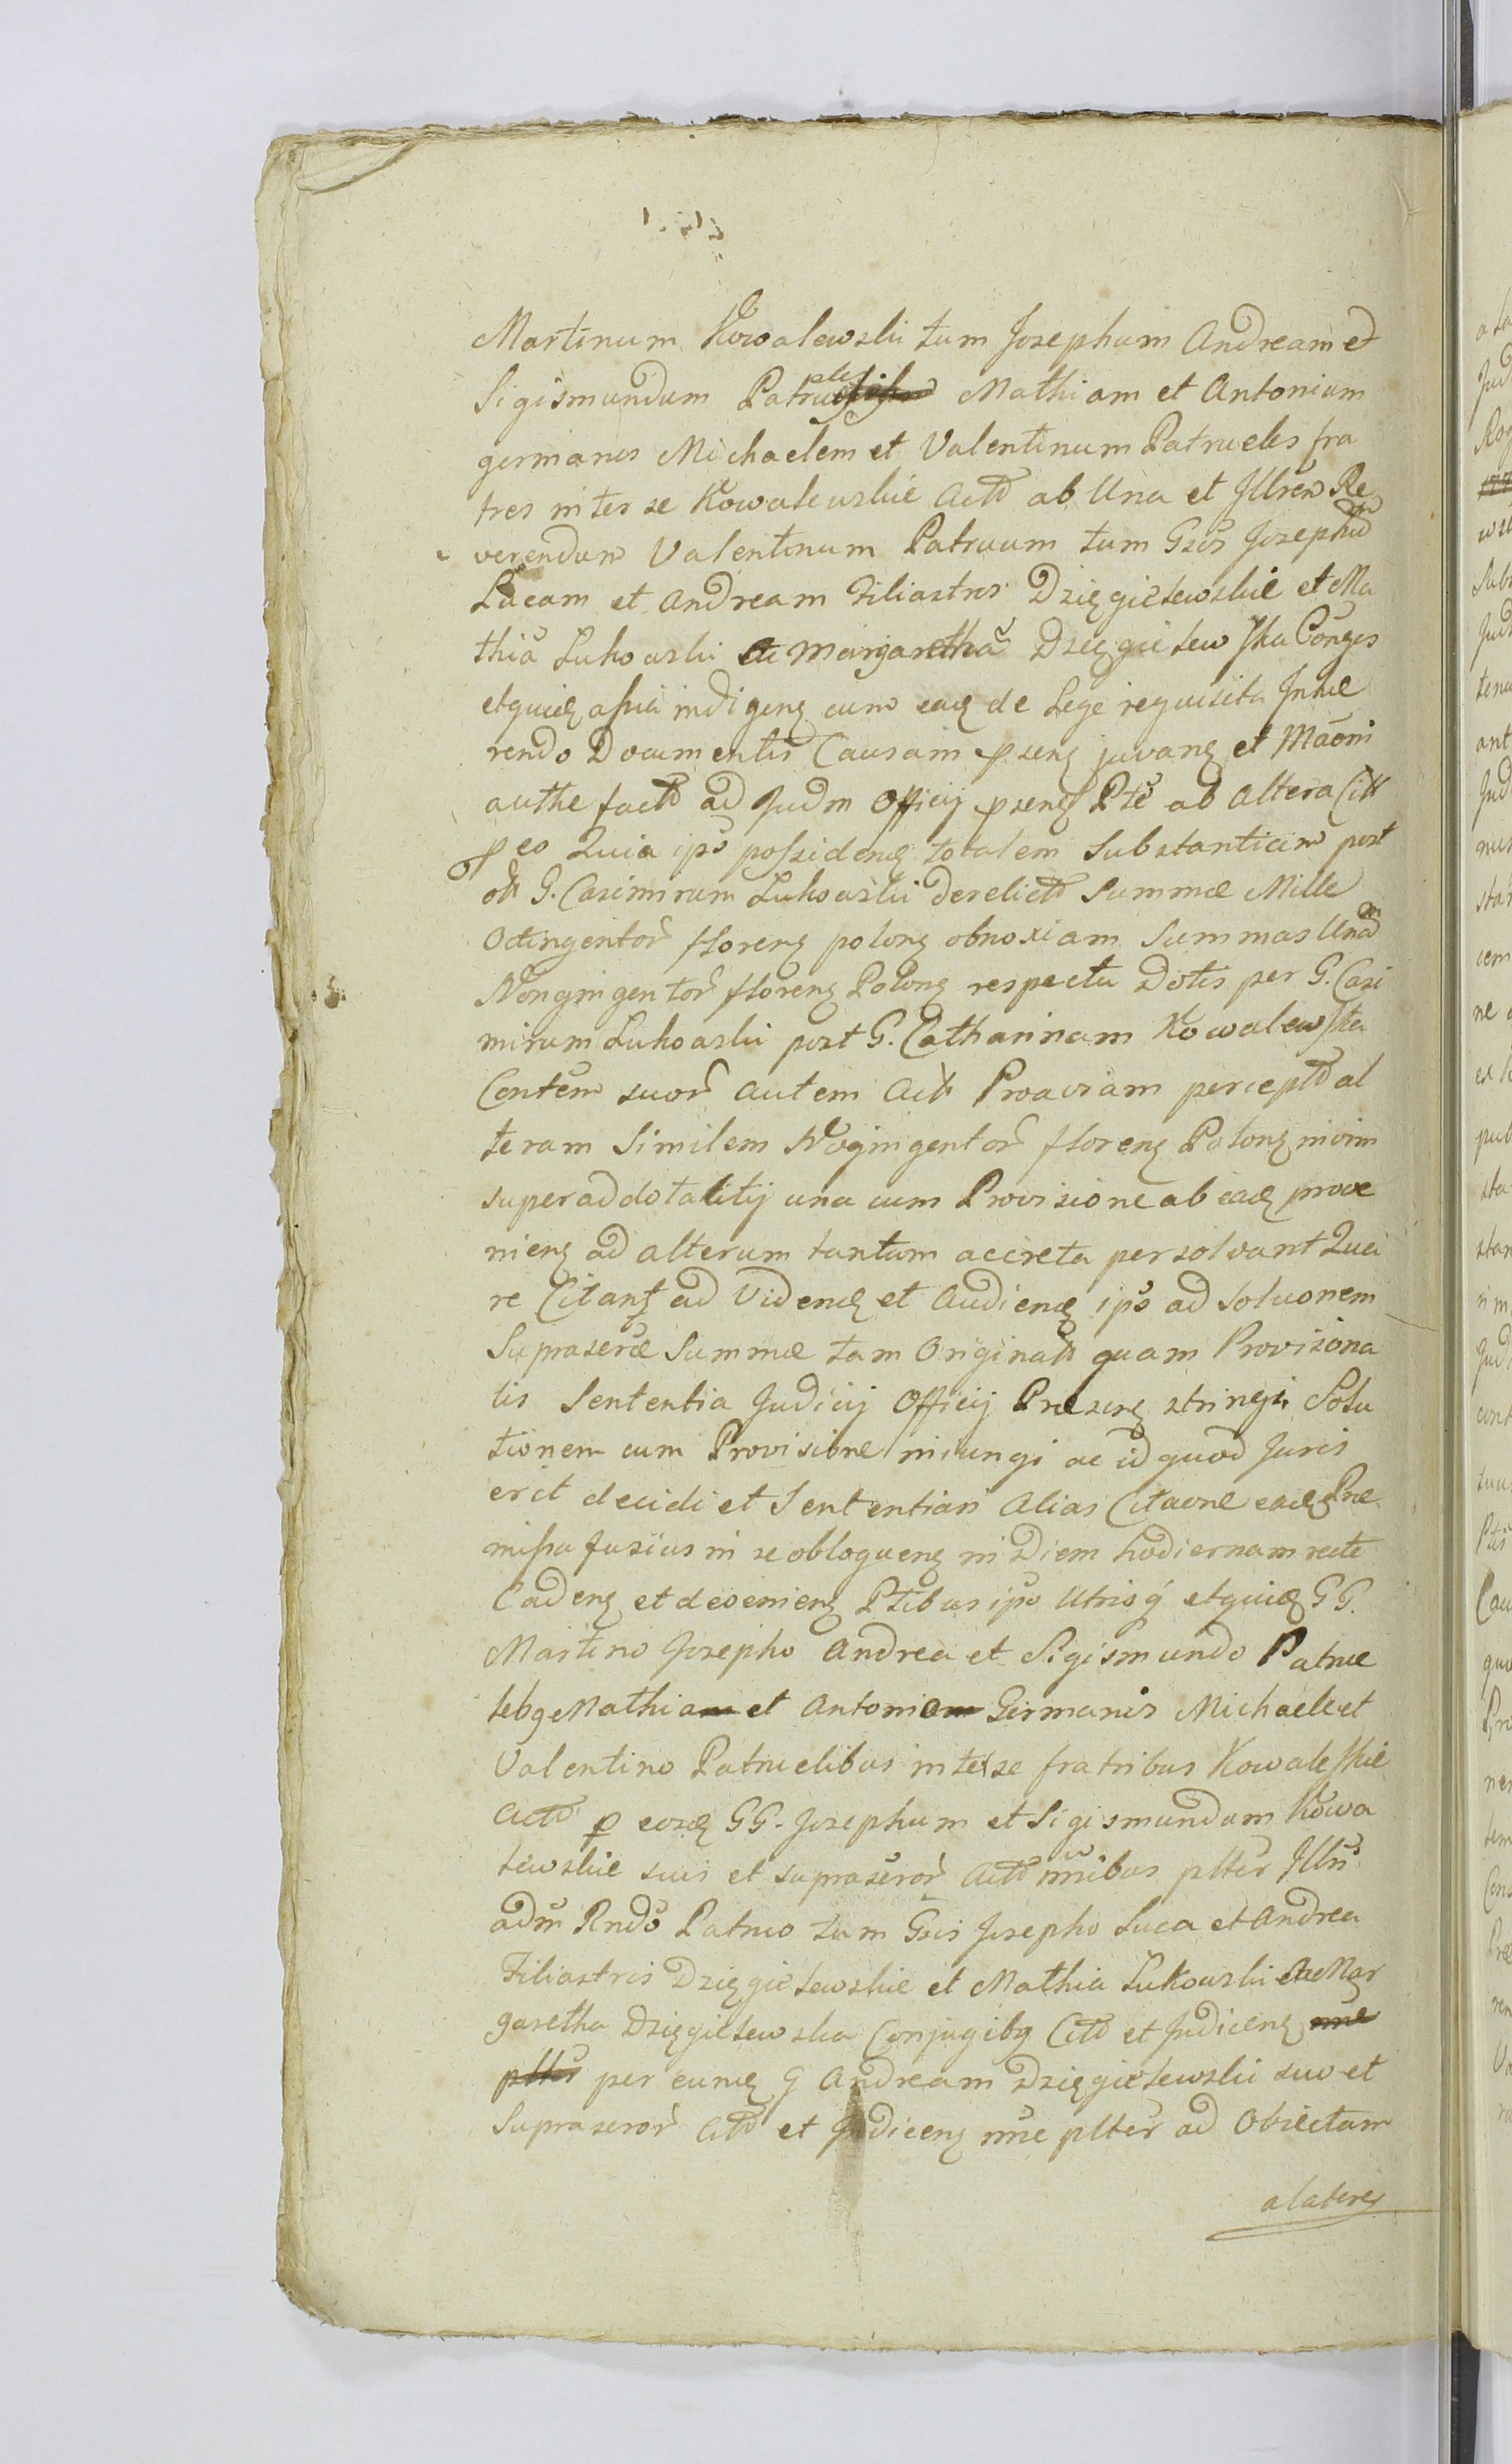 Martinum Kowalewski tum Josephum Andream et
Sigismundum Patrueles Mathiam et Antonium
germanos Michaelem et Valentinum Patrueles fra
tres inter se Kowalewskie Actt ab Una et Illrem Re
verendum Valentinum Patruum tum Gsos Josephum
Lucam et Andream Filiastros Dzięgielewskie et Ma
thia Lukowski ac Margaretha Dzięgielewska Conges
etquidz assia indigenz cum eadz de Lege requisita Inhæ
rendo Documentis Causam psenz juvanz et Maoni
authe factt ad Judm Officij psenz Pte ab altera Citt
peo Quia ipsi possidendz totalem Substantiam post
olt G. Casimirum Lukowski derelictt Summæ Mille
Octingentor florenz polonz obnoxiam Summas Unam
Nongingentor florenz Polonz respectu Dotis per G. Casi
mirum Lukowski post G. Catharinam Kowalewska
Contem suor autem Actt Proaviam perceptt al
teram Similem Nogingentor florenz Polonz
superaddotalitij una cum Provisione ab eadz prove
nienz ad alterum tantum accreta persolvant Qua
re Citantz ad Videndz et Audiendz ipso ad Soluonem
Suprascræ Summæ tam Originalt quam Provisiona
lis Sententia Judicij Officij Præsenz stringi Solu
tionem cum Provisione iniungi ac id quod Juris
erit decidi et Sententiari Alias Citaone eadz Præ
missa fusius in se obloquenz in Diem hodiernam recte
Cadenz et devenienz Ptibus ipso Utrisq etquidz GG.
Martino Josepho Andrea et Sigismundo Patrue
lebq Mathiam et Antoniom Germanis Michaele et
Valentino Patruelibus inter se fratribus Kowaleskie
Actt p eosdz GG. Josephum et Sigismundum Kowa
lewskie suis et supraseror Actt nnibus plter Illri
adm Rndo Patruo tum Gsis Josepho Luca et Andrea
Filiastris Dzięgielewskie et Mathia Lukowski ac Mar
garetha Dzięgielewska Conjugibq Citt et Judicenz nne
plter per eundz G Andream Dzięgielewski suo et
Supraseror Citt et Judicenz nne plter ad Obiectam
a latere